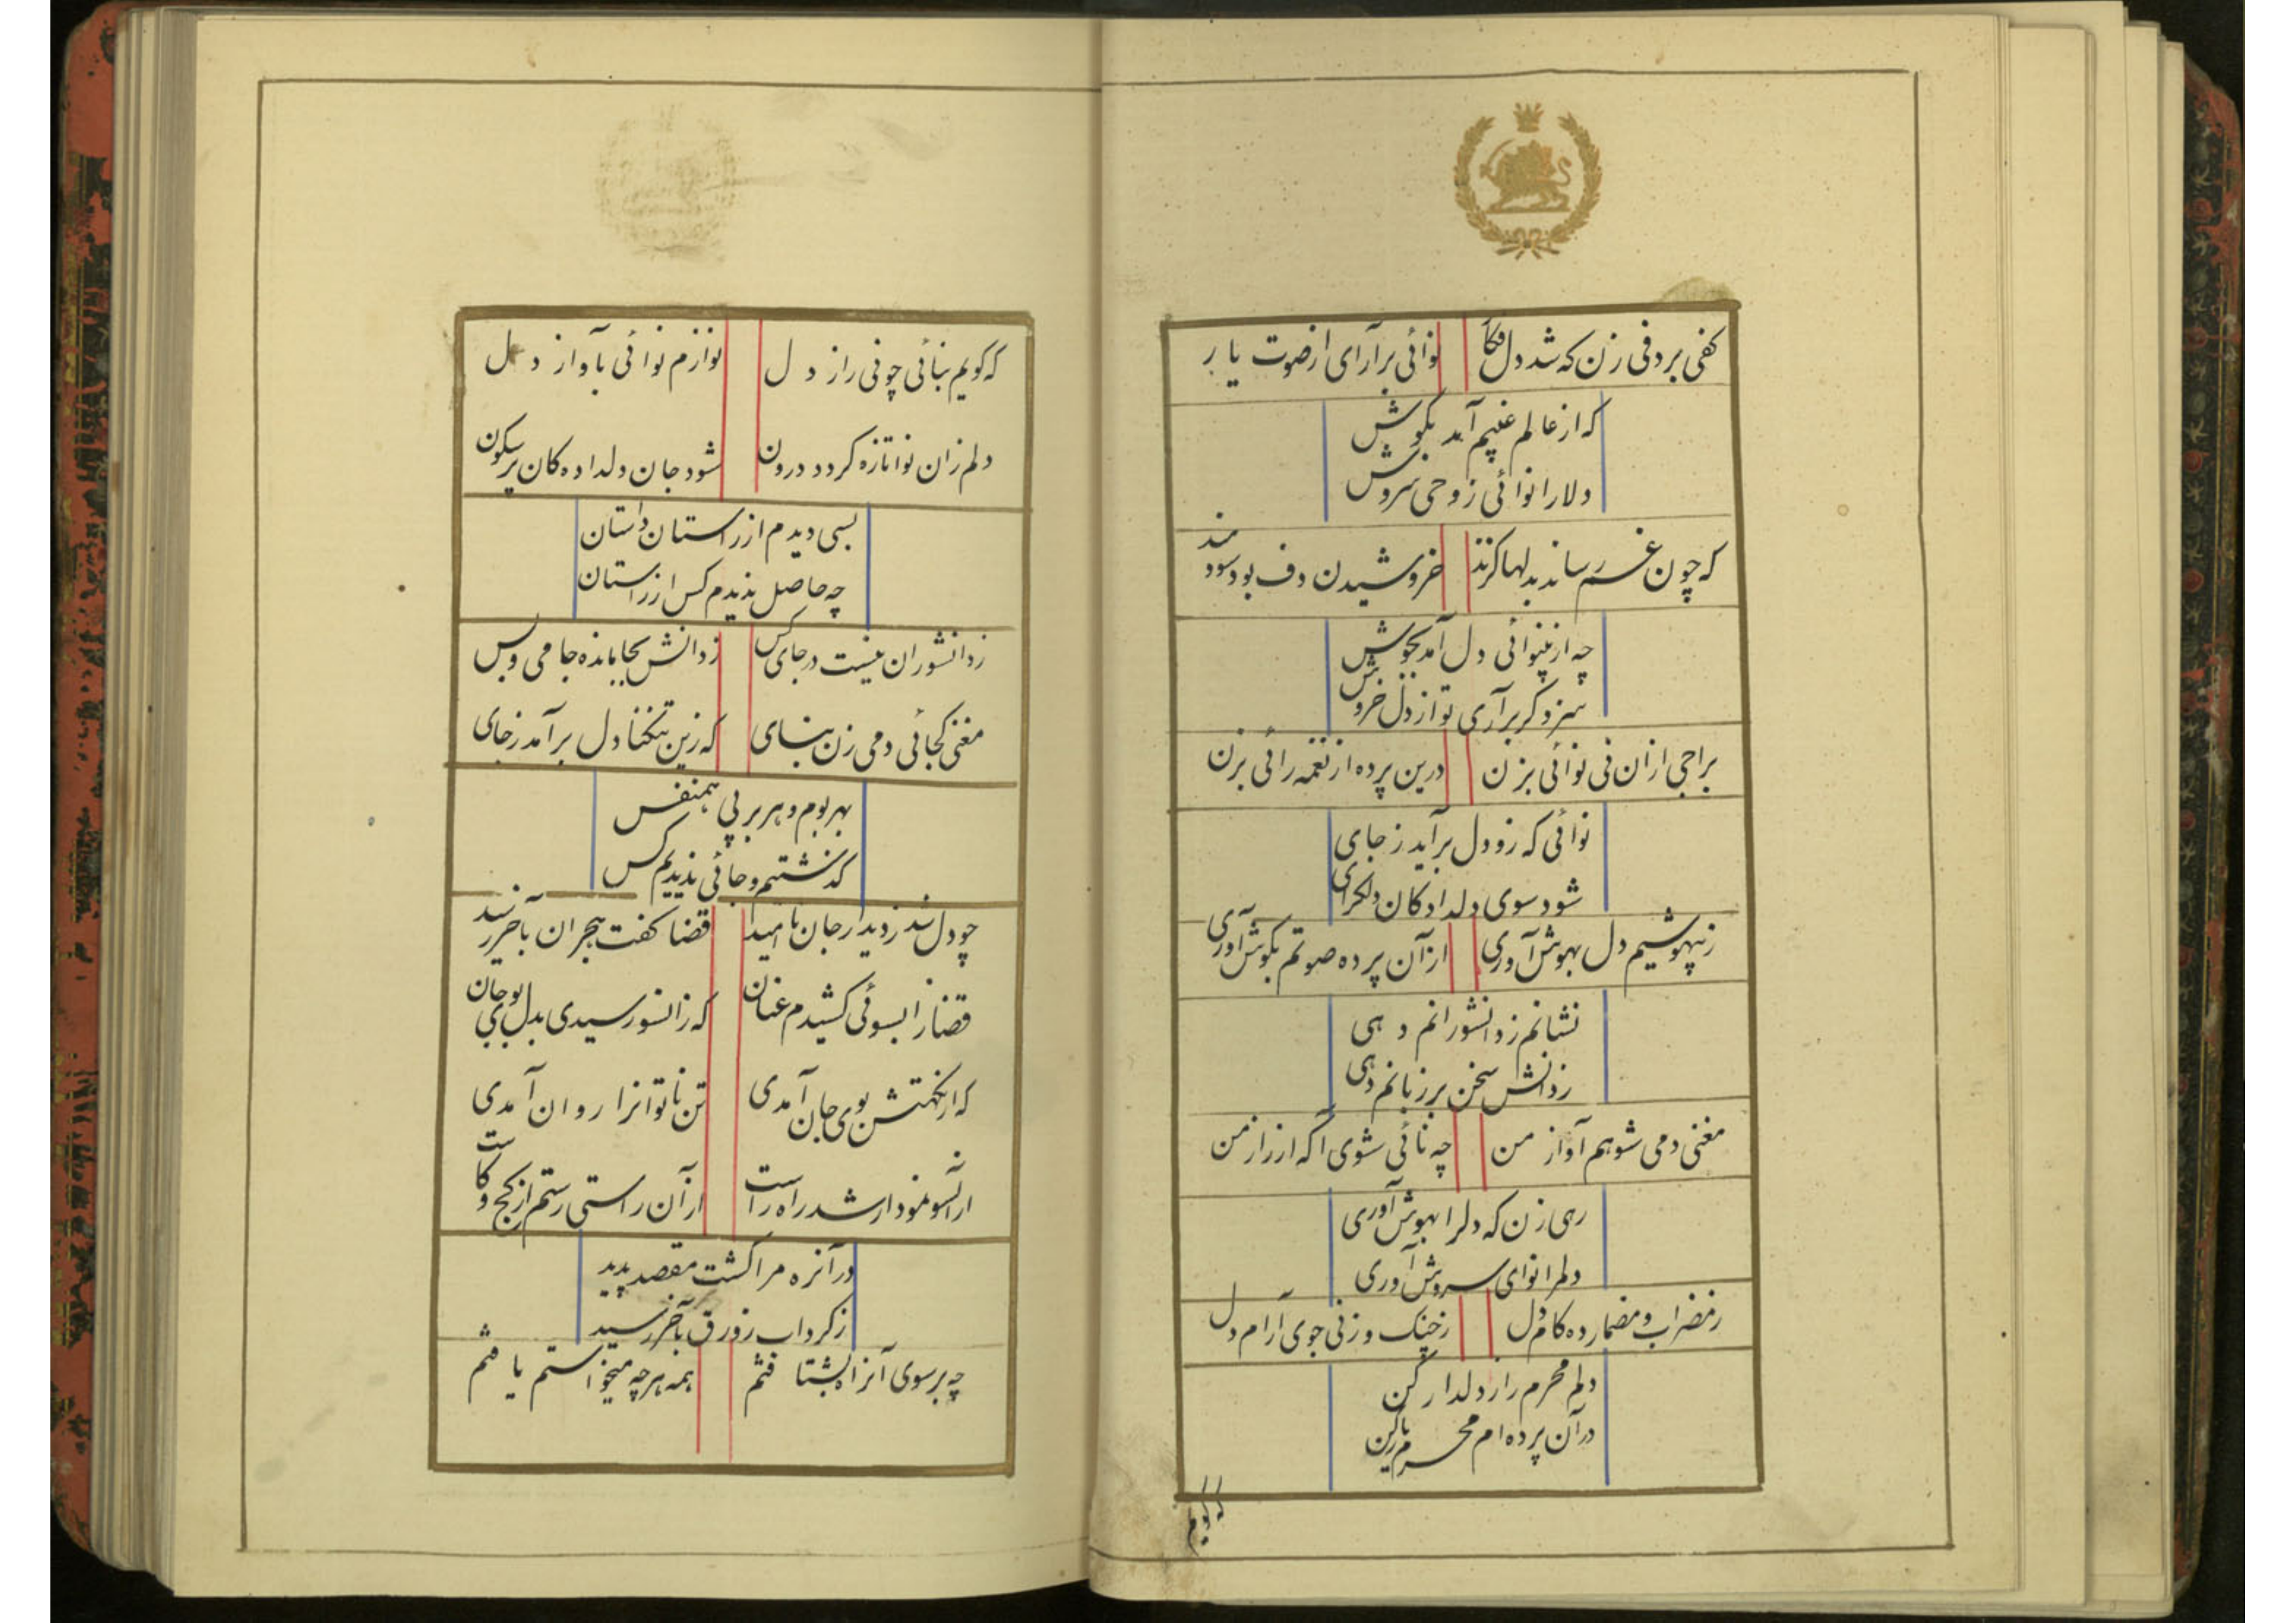 کفی بر دفی زن که شد دل فکار نوائی برآرای از صوت یار
که از عالم غیبم آمد بگوش
دلارا نوائی ز وحی سروش
که چون غم رساند بدلها کزند خروشیدن دف بود سودمند
چه از بینوائی دل آمد بجوش
سزد کر برآری تو از دل خروش
براحی از آن نی نوائی بزن درین پرده از نغمه رائی بزن
نوائی که زو دل برآید ز جای
شود سوی دلدادکان دلکرای
ز بیهوشیم دل بهوش آوری از آن پرده صوتم بکوش آوری
نشانم ز دانشورانم دهی
ز دانش سخن بر زبانم دهی
مغنی دمی شو هم آواز من چه نائی شوی اگه از راز من
رهی زن که دلرا بهوش آوری
دلمرا نوای سروش آوری
ز مضراب و مضمار ده کام دل ز چنک و ز نی جوی آرام دل
دلم محرم راز دلدار کن
در آن پرده ام محرم یار کن
که کویم
که کویم بنائی چو نی راز دل نوازم نوائی بآواز دل
دلم زان نوا تازه کردد درون شود جان دلداده کان پر سکون
بسی دیدم از راستان داستان
چه حاصل ندیدم کس از راستان
ز دانشوران نیست در جای کس ز دانش بجا مانده جامی و بس
مغنی کجائی دمی زن بنای که زین تنکنا دل برآمد ز جای
بهر بوم و هر بر پی همنفس
کذشتیم و جائی ندیدیم کس
چو دل شد ز دیدار جان نا امید قضا کفت هجران بآخر رسید
قضا را بسوئی کشیدم عنان که زانسو رسیدی بدل بوی جان
که از نکهتش بوی جان آمدی تن ناتوانرا روان آمدی
از آنسو نمودار شد راه راست از آن راستی رستم از کج و کاست
در آنره مرا کشت مقصد پدید
ز کرداب زورق بآخر رسید
چه بر سوی آنراه بشتافتم همه هر چه میخواستم یافتم